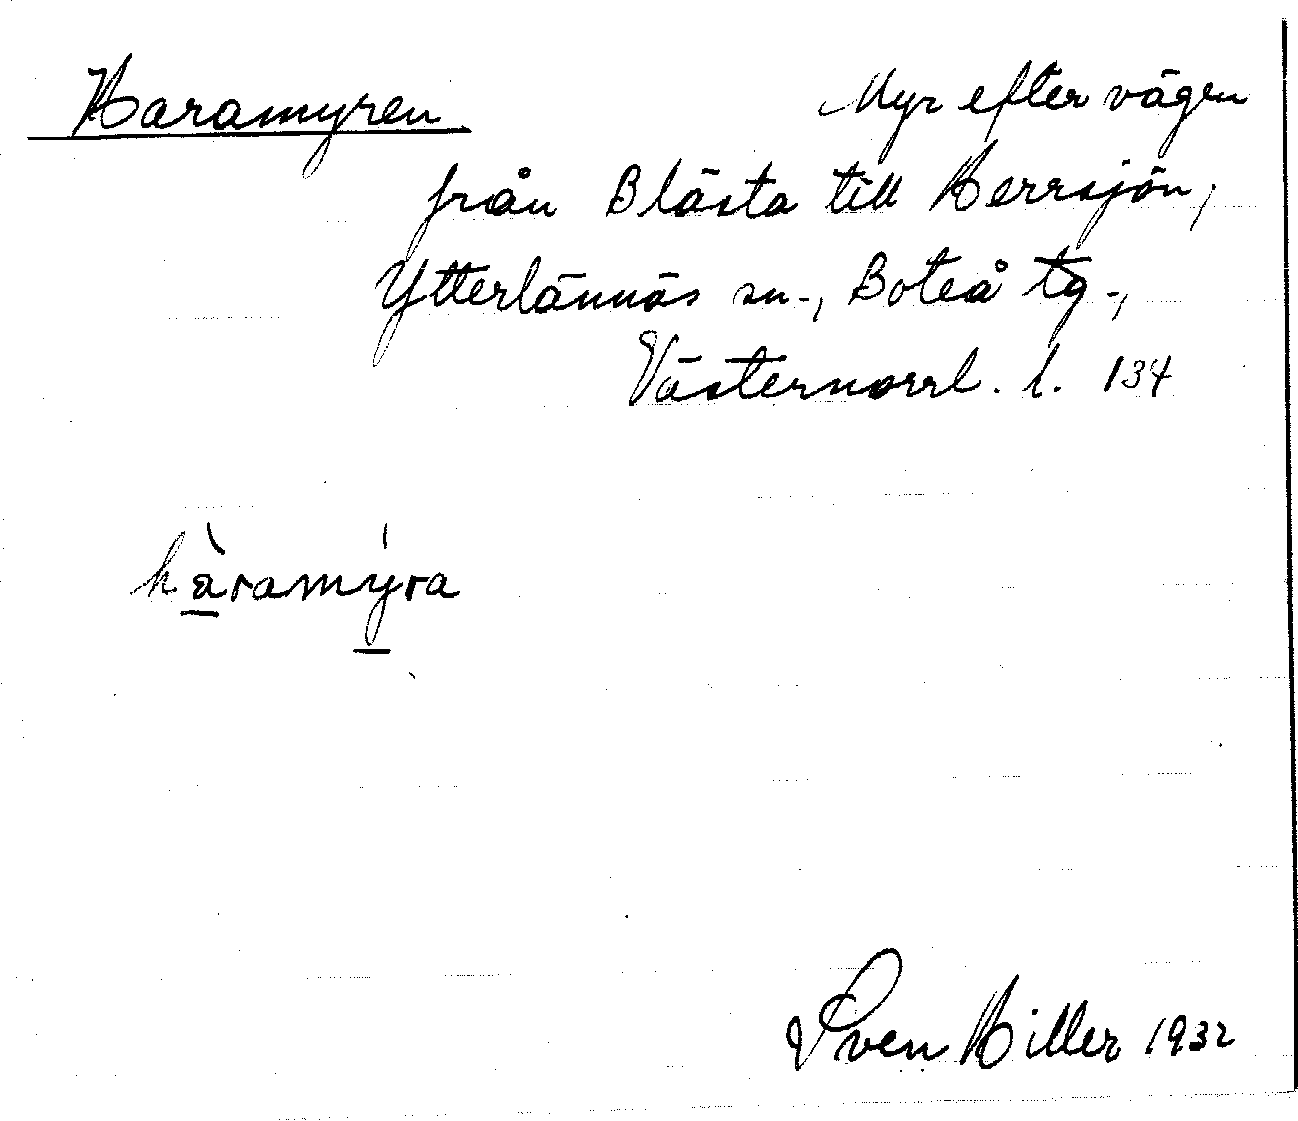 Haramyren. Myr efter vägen
från Blästa till Herrsjön,
Ytterlännäs sn., Boteå tg.,
Västernorrl. l. 134
hàramýra
Sven Hiller 1932